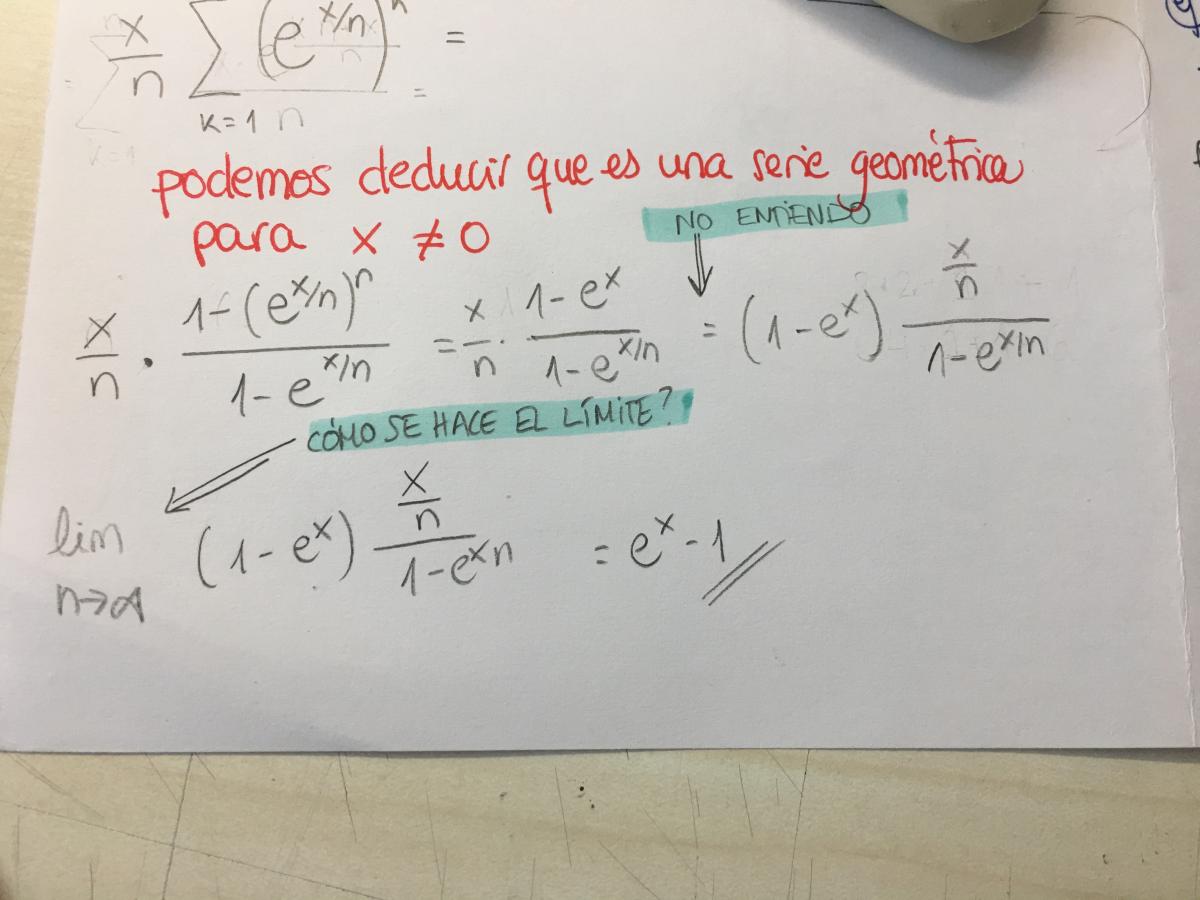 x/n ∑ (e^(x/n))^n =
k=1 n =
podemos deducir que es una serie geométrica
para x ≠ 0
NO ENTIENDO
x/n · (1-(e^(x/n))^n)/(1-e^(x/n)) = x/n · (1-e^x)/(1-e^(x/n)) = (1-e^x) (x/n)/(1-e^(x/n))
CÓMO SE HACE EL LÍMITE?
lim n→∞ (1-e^x) (x/n)/(1-e^x n) = e^x - 1